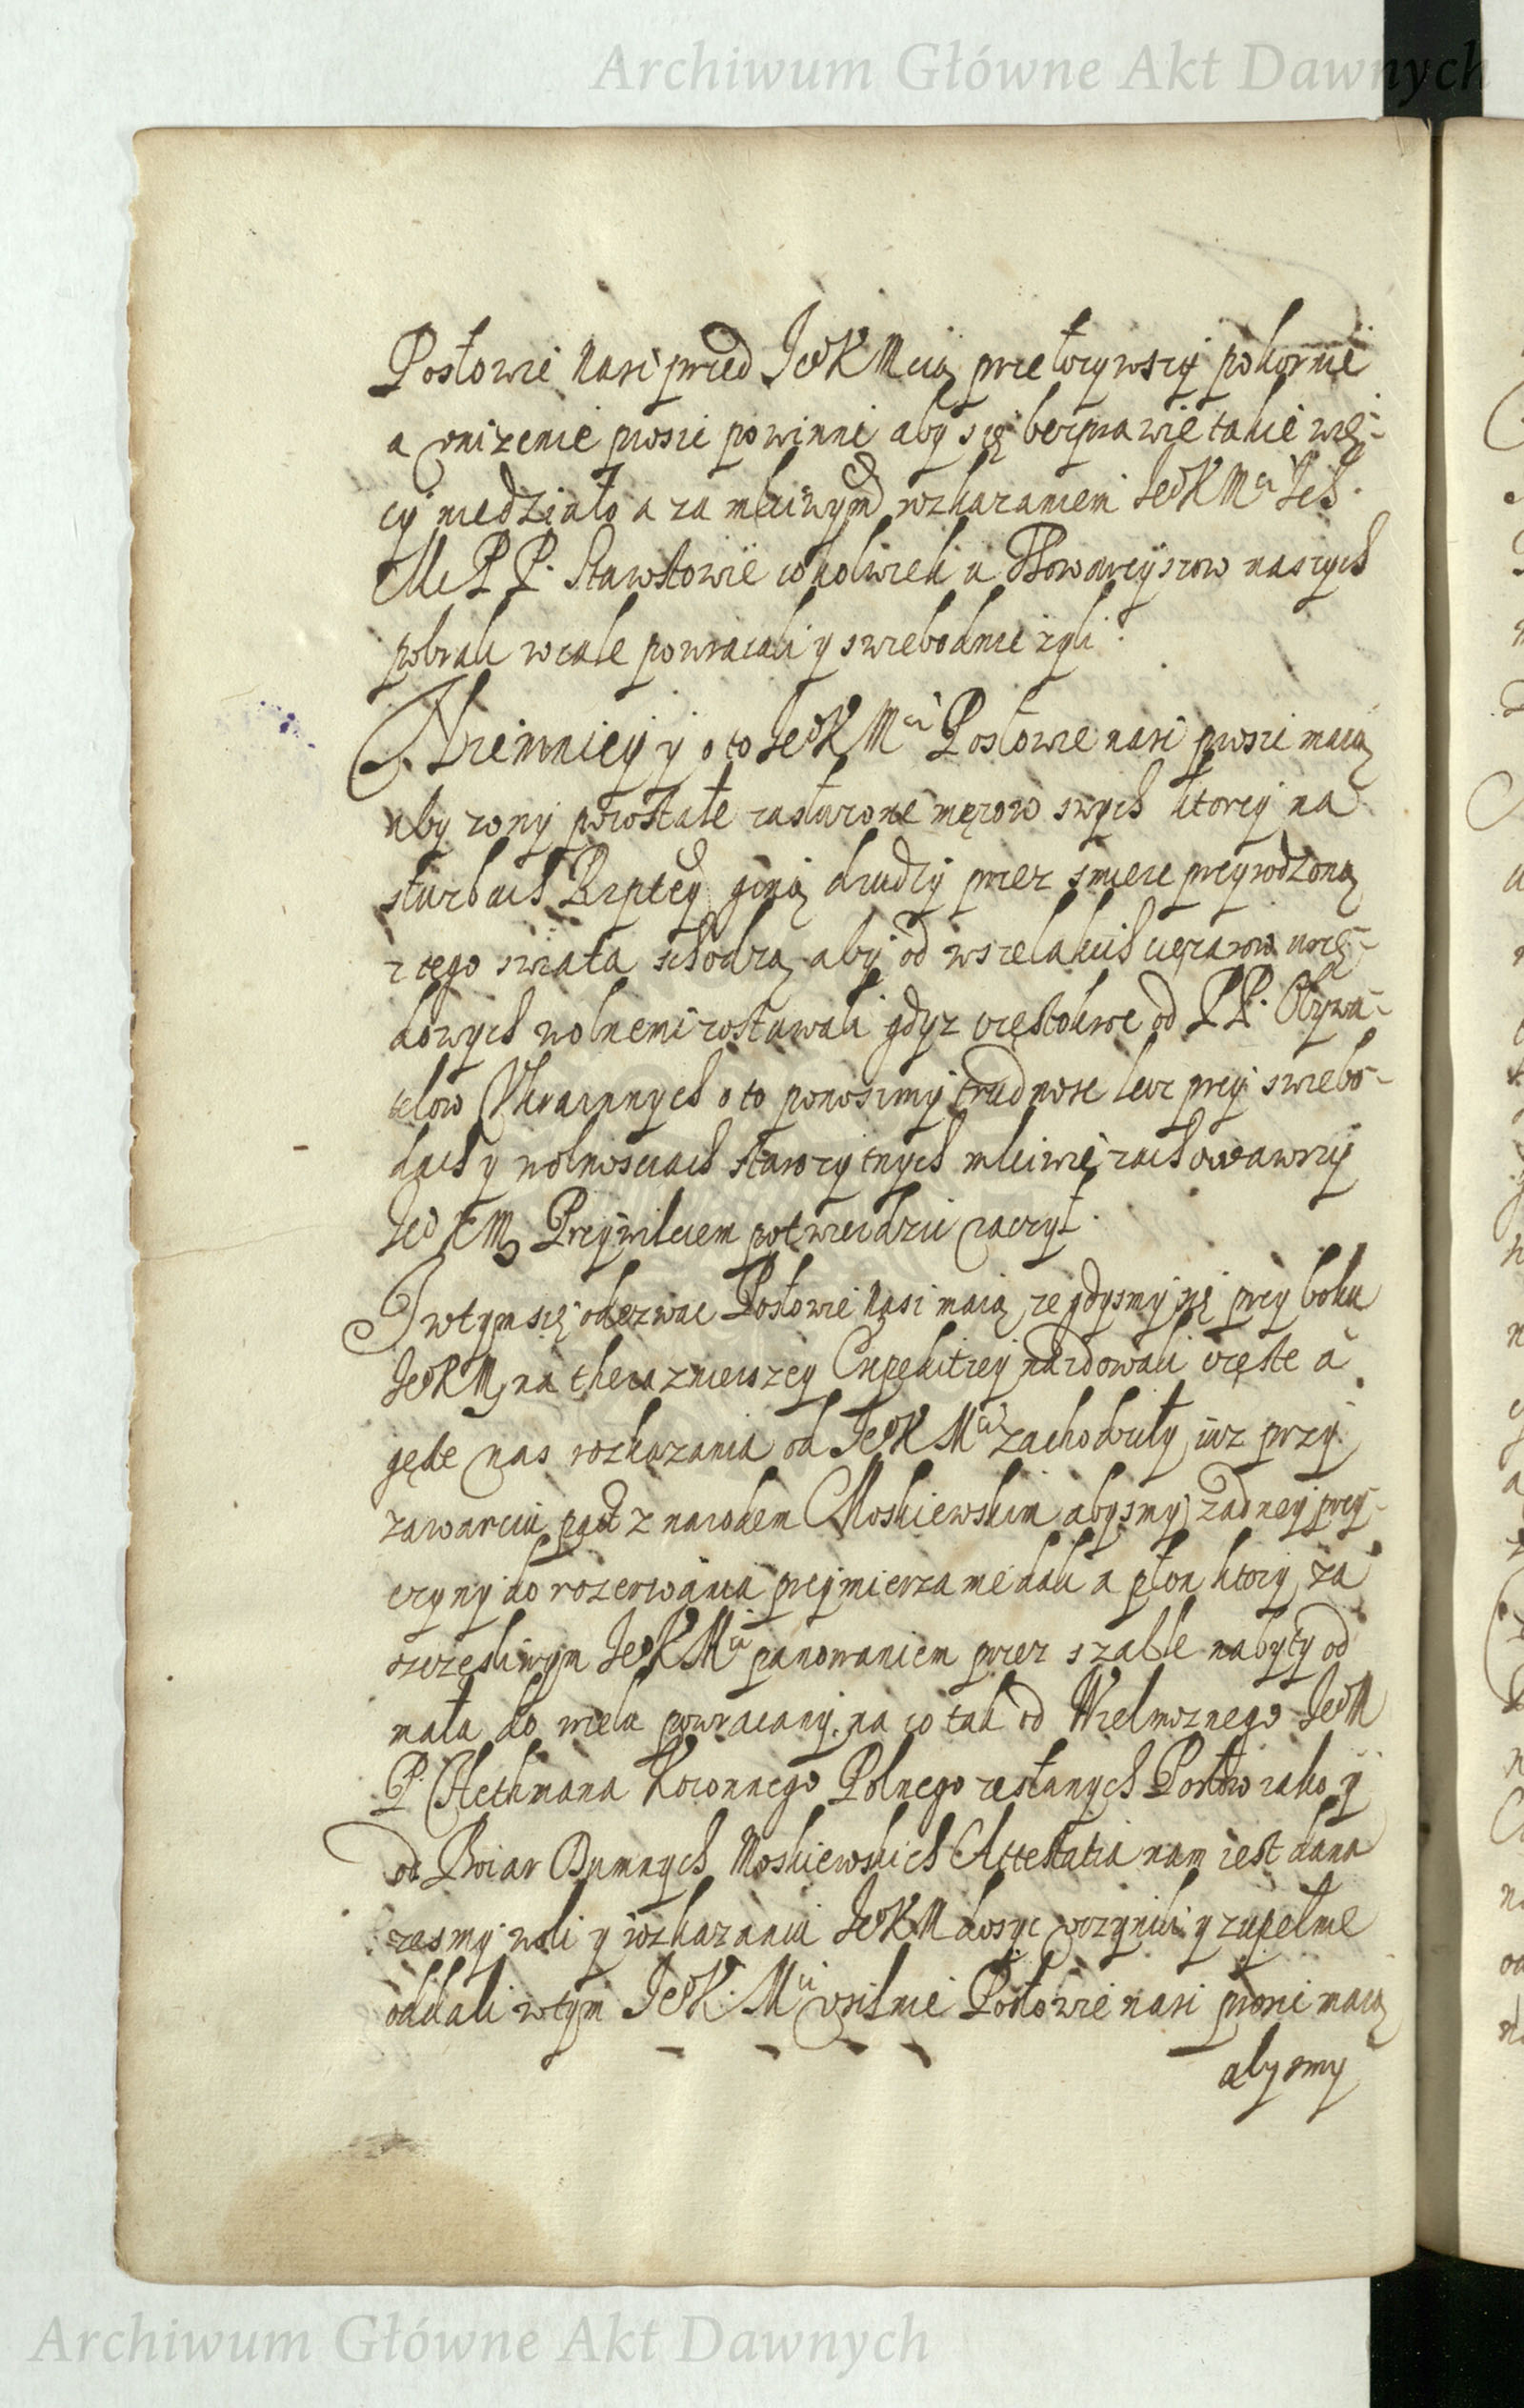 Archiwum Główne Akt Dawnych
Posłowie nasi przed JeoKMcią przełozywszÿ pokornie
a vnizenie prosic powinni aby się bezprawie takie wię-
cÿ niedziało a za mściwym rozkazaniem JeoKMci Ich
M PP. Starostowie cokolwiek u Thowarzÿszow naszych
pobrali wcale powracali y swiebodnie zyli.
Niemniey y o to JeoKMci Posłowie nasi prosic maią
aby zony pozostałe zasłuzone męzow swych ktorzÿ na
słuzbach Rzptey giną drudzÿ przez smierc przyrodzoną
z tego swiata schodzą abÿ od wszelakich cięzarow urzę-
dowych wolnemi zostawali gdyz częstokroc od PP. Obywa-
telow Vkrainnych o to ponosimy trudnosc lecz przÿ swiebo-
dach y wolnosciach starozytnych mściwie zachowawszÿ
JeoKM Przÿwileiem potwierdzic raczył.
I wtym się odezwac Posłowie nasi maią ze gdysmÿ się przy boku
JeoKM na theraznieiszey Expeditiey naidowali częste a
gęste nas rozkazania od JeoKMci zachodziły iuz przÿ
zawarciu pact z narodem Moskiewskim abysmÿ zadneÿ przÿ-
czynÿ do rozerwania przÿmierza nie dali a plon ktory za
szczęsliwym JeoKMci panowaniem przez szable nabyty od
mała do wiela powracany, na co tak od Wielmoznego JeoM
P. Hethmana Koronnego Polnego zesłanych Posłow iako y
od Boiar Dumnych Moskiewskich Attestatia nam iest dana
zesmÿ woli y rozkazaniu JeoKM dosyc vczynili y zupełnie
oddali wtym JeoK.Mci vsilnie Posłowie nasi prosic maią
abysmy
Archiwum Główne Akt Dawnych